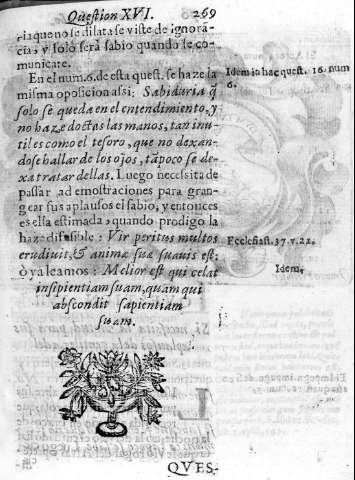 Question XVI. 269
ria que no se dilata se viste de ignorā-
cia, y solo será sabio quando se co-
municare.
En el num. 6. de esta quest. se haze la
misma oposicion assi: Sabiduria q̄
solo se queda en el entendimiento, y
no haze doctas las manos, tan inu-
til es como el tesoro, que no dexan-
dose hallar de los ojos, tāpoco se de-
xa tratar dellas. Luego necessita de
passar a demostraciones para gran-
gear sus aplausos el sabio, y entonces
es ella estimada, quando prodigo la
haze difusible: Vir peritus multos
erudiuit, & animæ suæ suauis est:
ò ya leamos: Melior est qui celat
insipientiam suam, quam qui
abscondit sapientiam
suam.
Idem in hac quest. 16. num
6.
Ecclesiast. 37. v. 22.
Idem.
QVES-